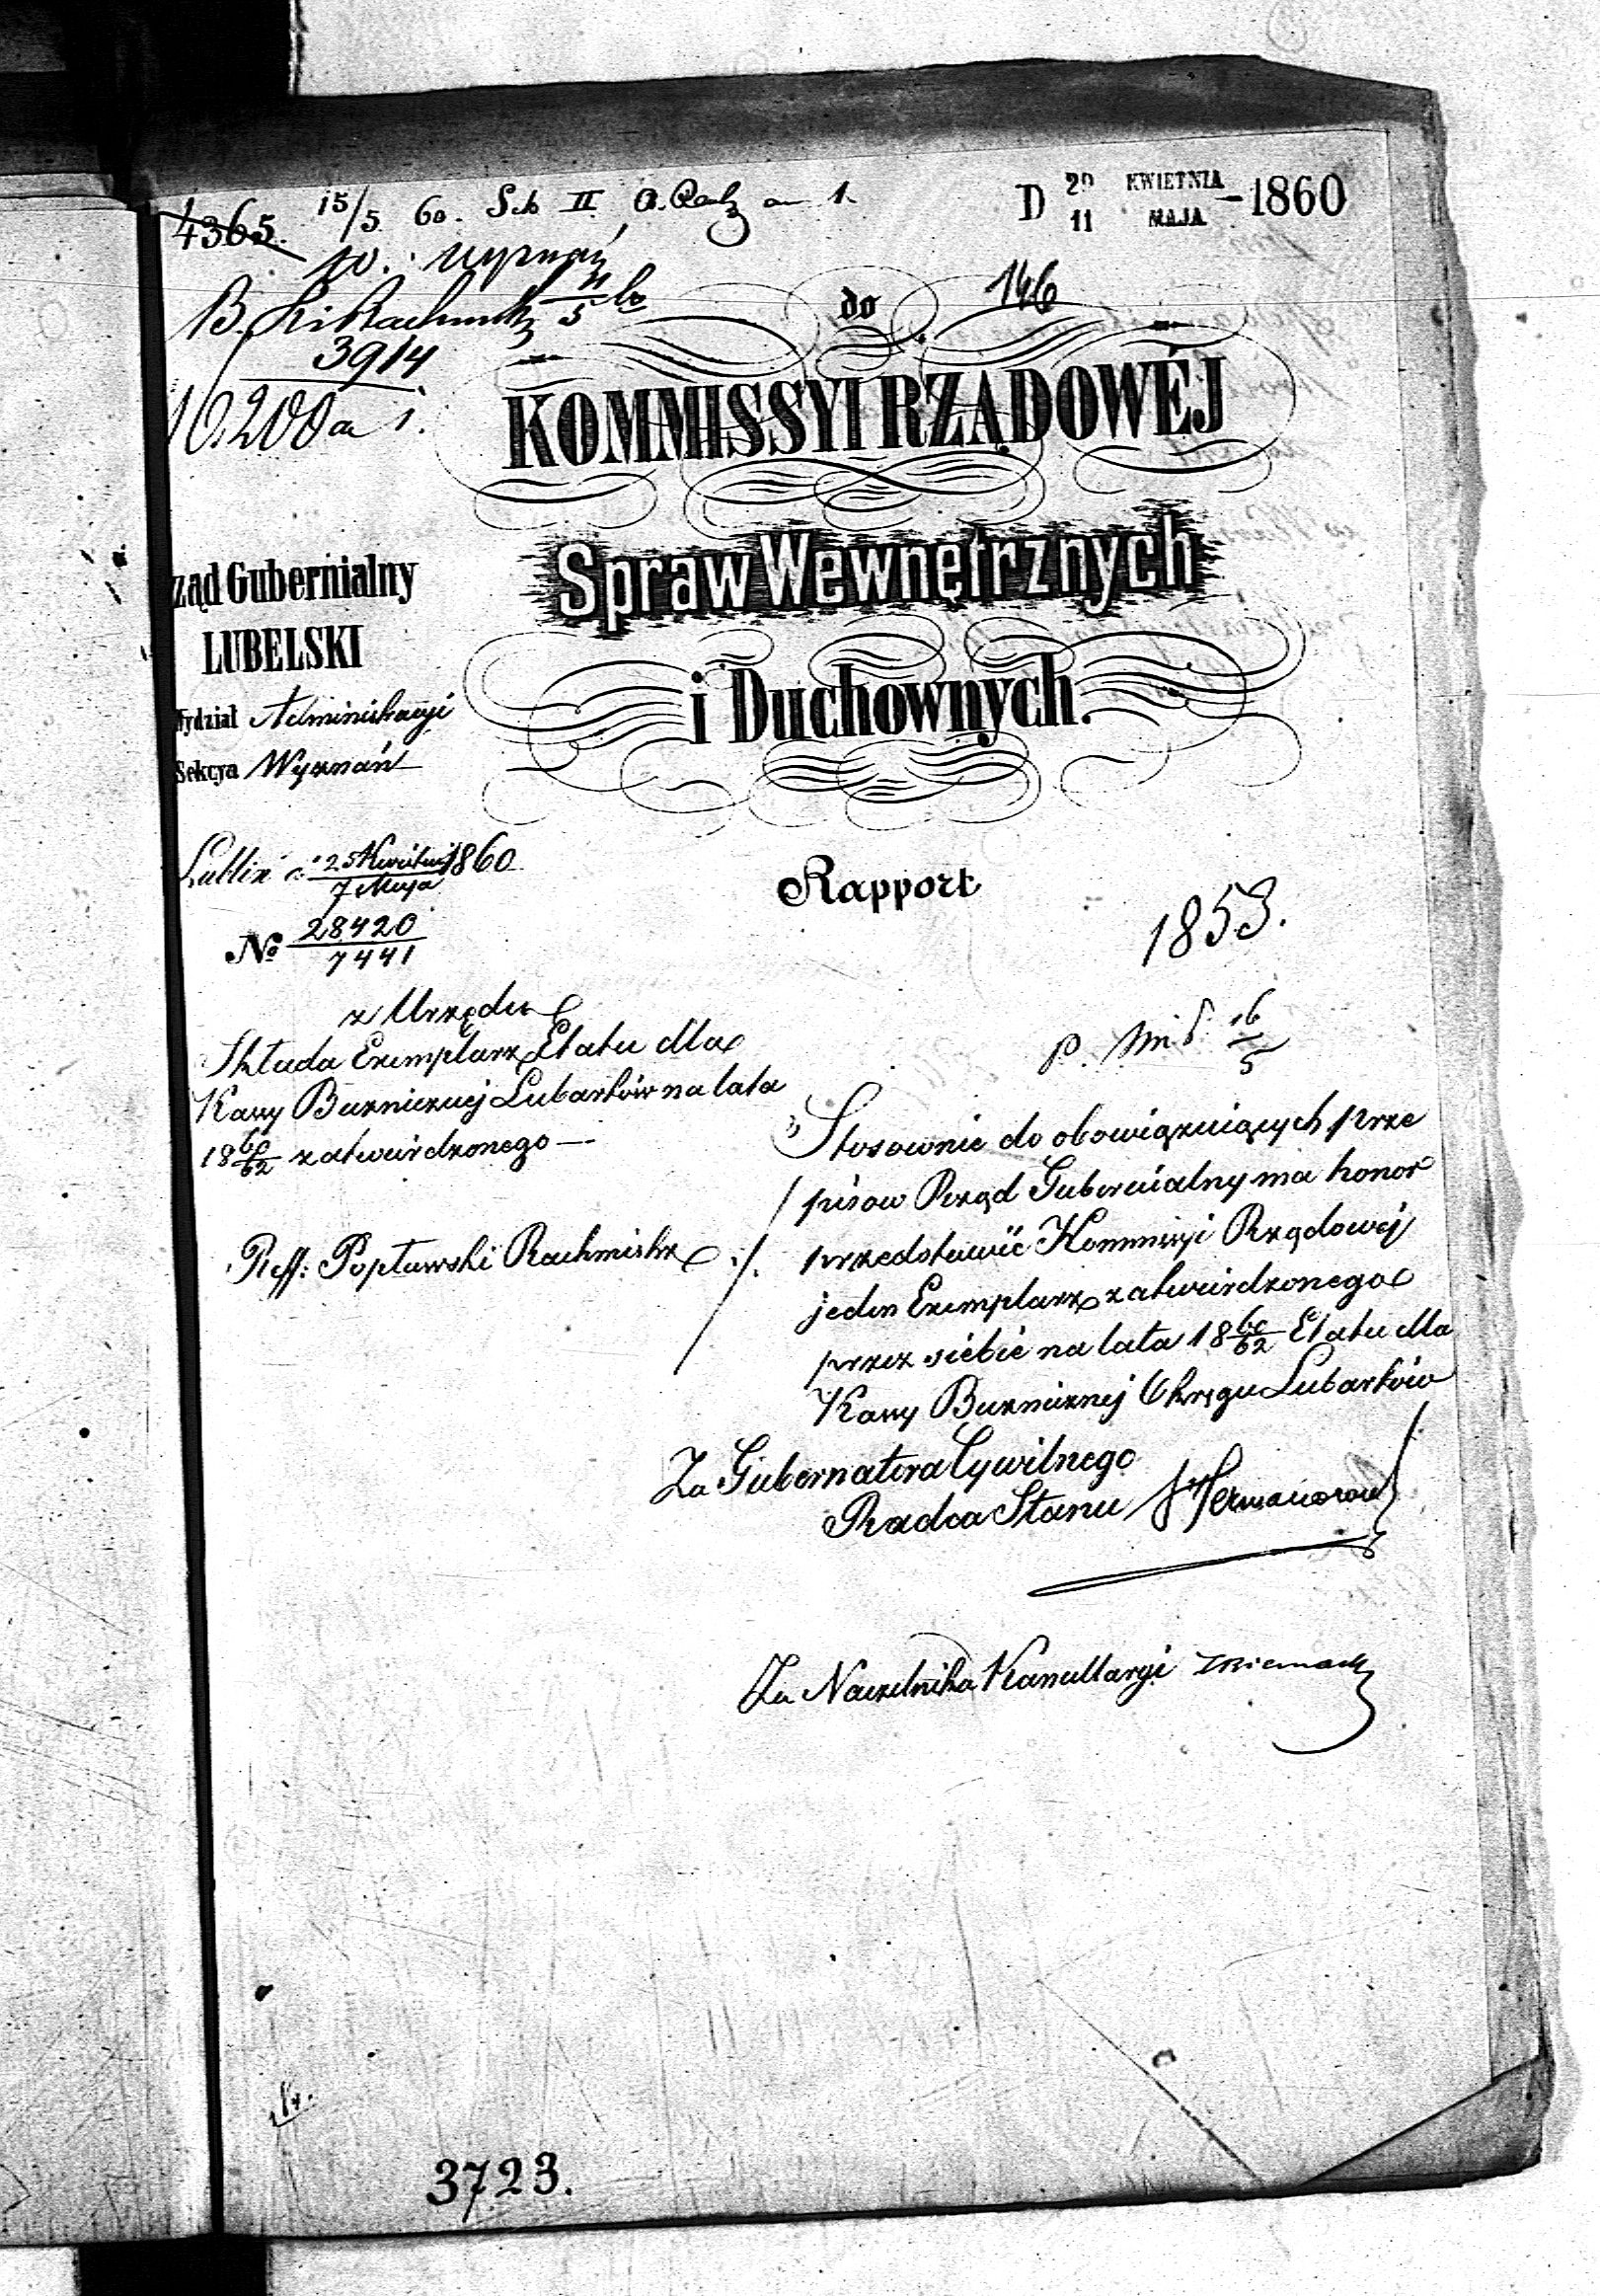 4365. 15/5 60. Sek II.
D 29/11 KWIETNIA/MAJA - 1860
w. wyznań
146
do
3914
KOMMISSYI RZĄDOWÉJ
10.200 a 1.
Spraw Wewnętrznych
i Duchownych.
ząd Gubernialny
LUBELSKI
Wydział Administracyi
Sekcya Wyznań
Lublin d. 25 Kwietnia/7 Maja 1860
Rapport
1853.
No 28420/7441
16/5
z Urzędu
Składa Exemplarz Etatu dla
Kassy Bużnicznej Lubartów na lata
18 60/62 zatwierdzonego —
Reff: Popławski Rachmistrz ./.
Stosownie do obowiązuiących prze
pisow Rząd Gubernialny ma honor
przedstawić Kommissyi Rządowej
jeden Exemplarz zatwierdzonego
przez siebie na lata 18 60/62 Etatu dla
Kassy Bużnicznej Okręgu Lubartów
Za Gubernatora Cywilnego
Radca Stanu
Za Naczelnika Kancellaryi
3723.